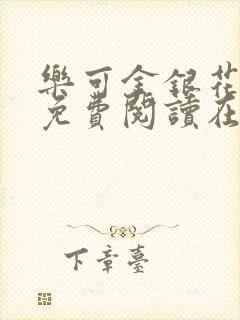 樂可金銀花
免費閱讀在
下章臺